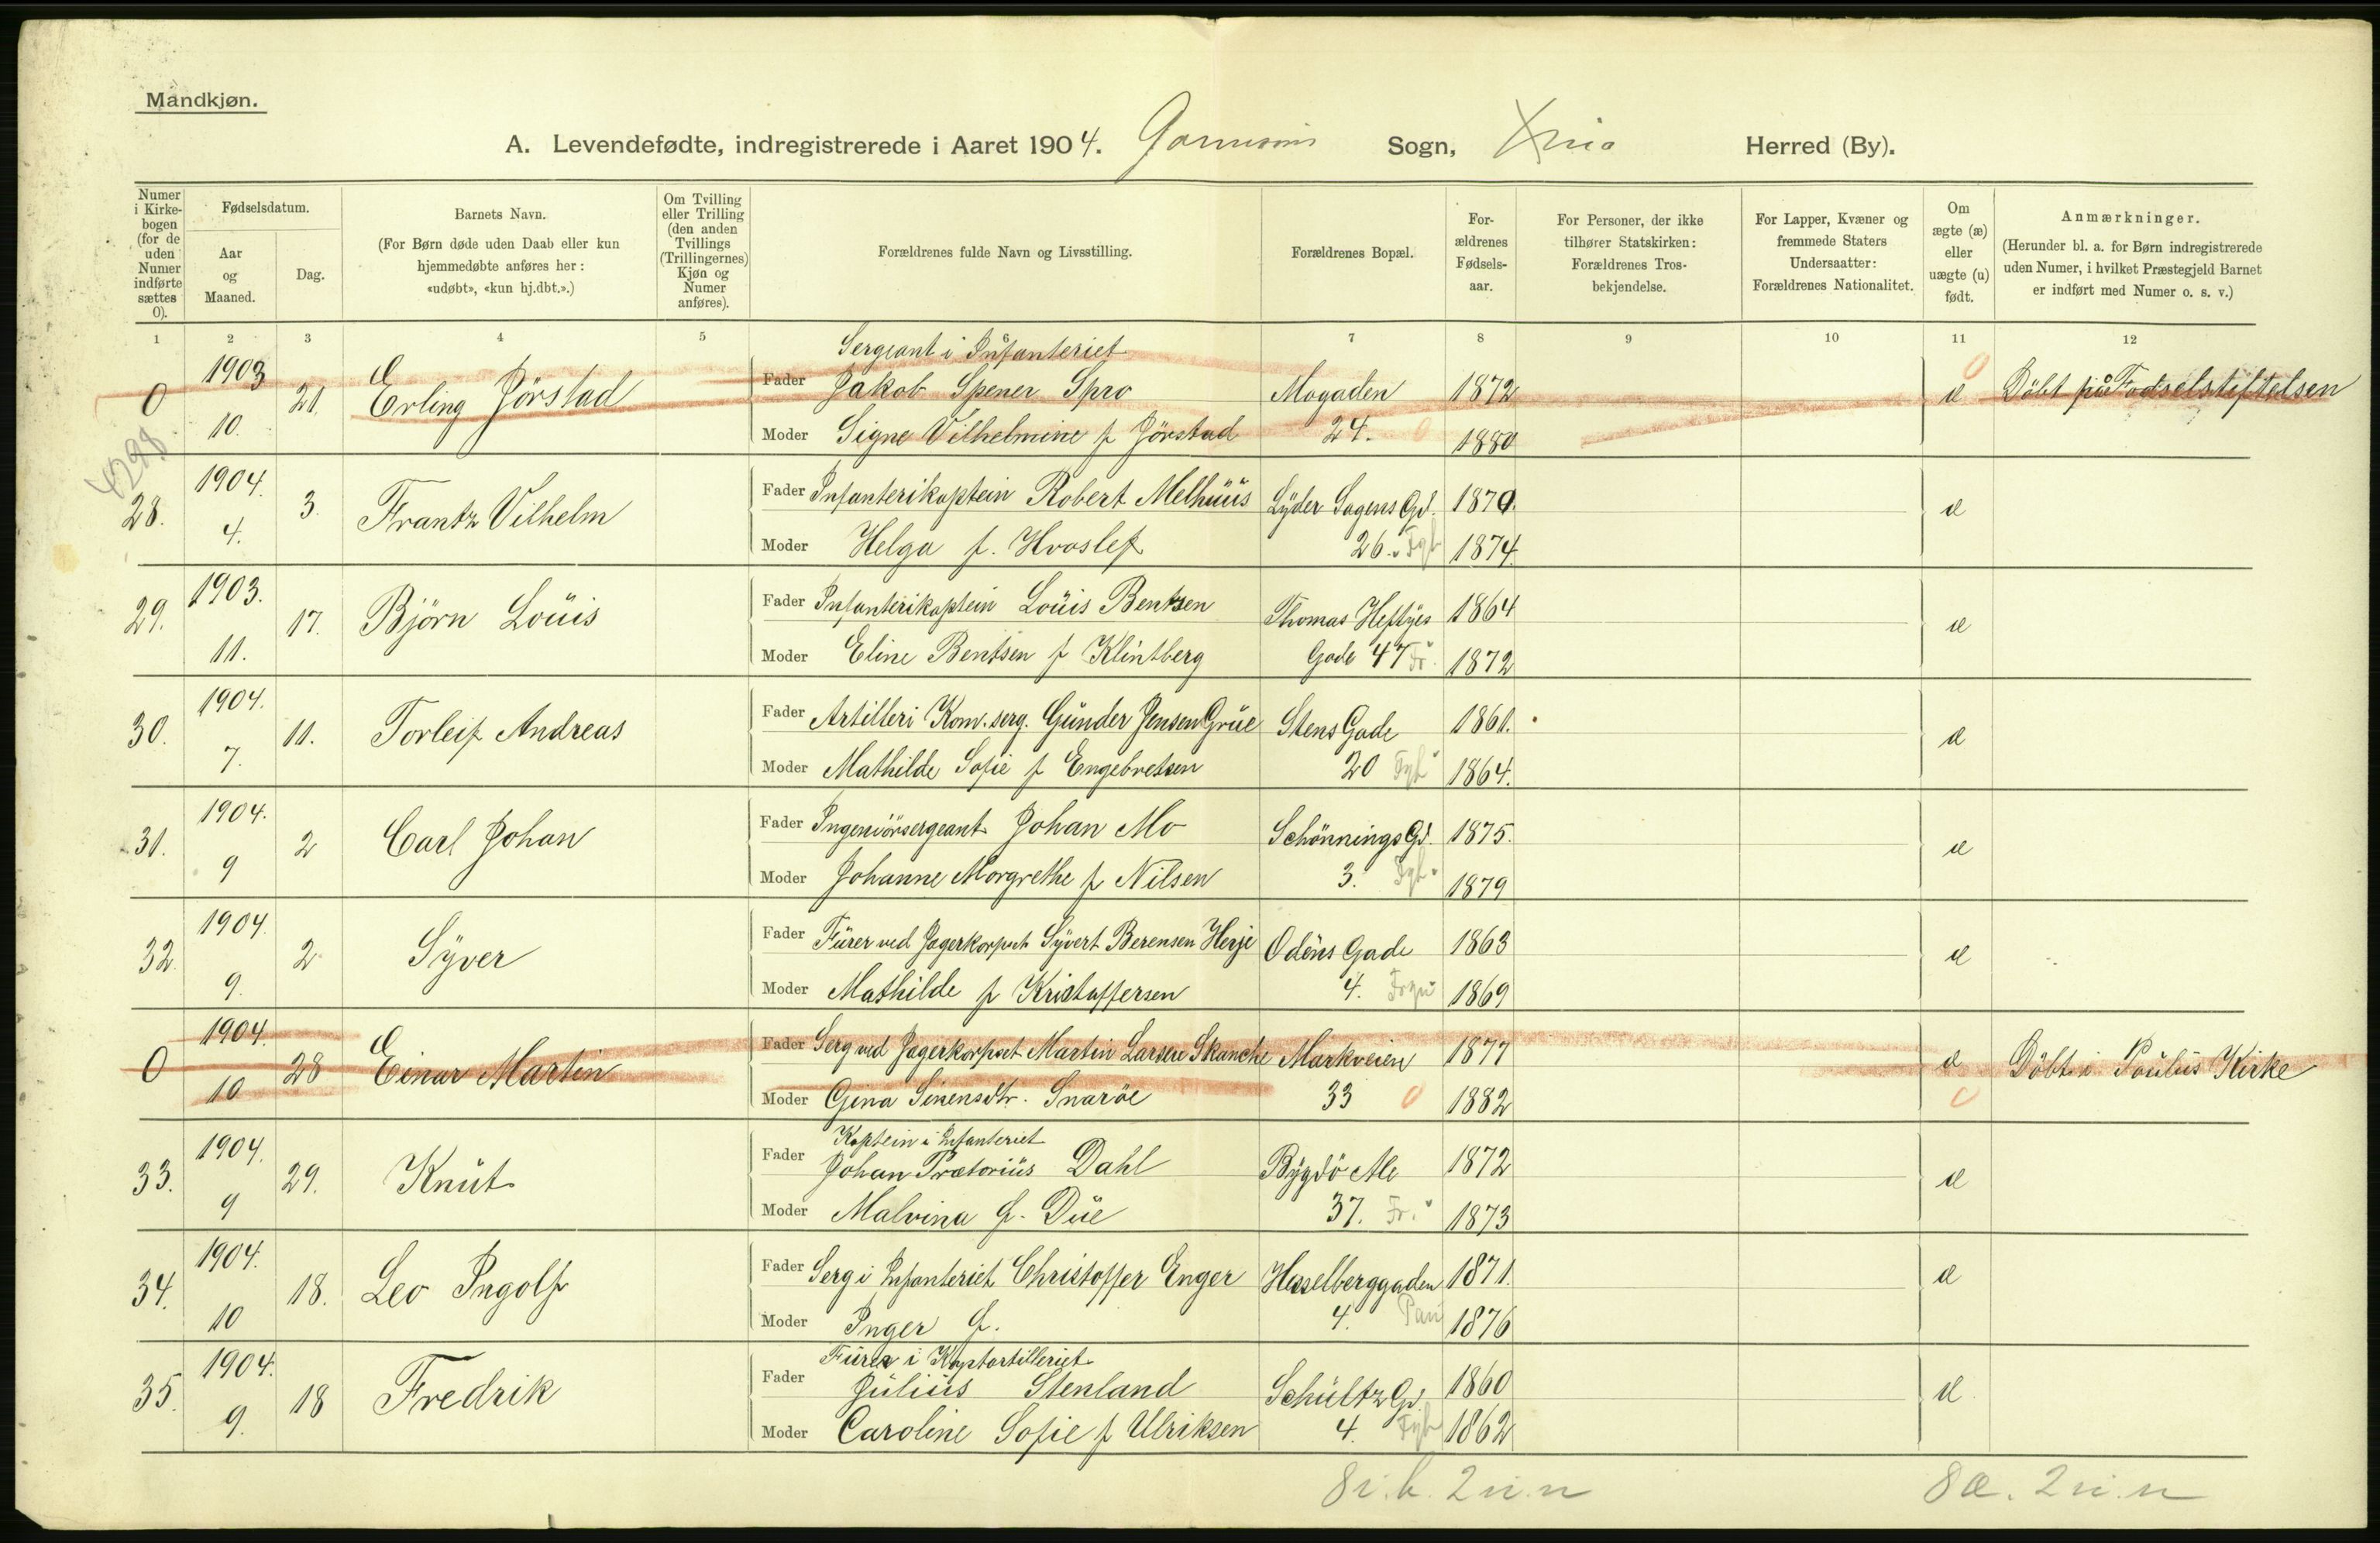 Mandkjøn.
A. Levendefødte, indregistrerede i Aaret 1904. Garnisons Sogn, Xnia Herred (By).
Numer i Kirke-bogen (for de uden Numer indførte sættes 0).
Fødselsdatum.
Aar og Maaned.
Dag.
Barnets Navn.
(For Børn døde uden Daab eller kun hjemmedøbte anføres her: «udøbt», «kun hj.dbt.».)
Om Tvilling eller Trilling (den anden Tvillings (Trillingernes) Kjøn og Numer anføres).
Forældrenes fulde Navn og Livsstilling.
Forældrenes Bopæl.
For-ældrenes Fødsels-aar.
For Personer, der ikke tilhører Statskirken: Forældrenes Tros-bekjendelse.
For Lapper, Kvæner og fremmede Staters Undersaatter: Forældrenes Nationalitet.
Om ægte (æ) eller uægte (u) født.
Anmærkninger.
(Herunder bl. a. for Børn indregistrerede uden Numer, i hvilket Præstegjeld Barnet er indført med Numer o. s. v.)
1 2 3 4 5 7 8 9 10 11 12
Sergeant i Infanteriet
0 1903 10. 21. Erling Jörstad Fader Jakob Spener Spro Mogaden 1872 æ Döbt på Fødselsstiftelsen
Moder Signe Vilhelmine f Jörstad 24. 0 1880
4298
28. 1904. 4. 3. Frantz Vilhelm Fader Infanterikaptein Robert Melhüüs Lyder Sagens Gd. 1870. æ
Moder Helga f. Hvoslef 26. Fgb 1874.
29. 1903. 11. 17. Björn Loüis Fader Infanterikaptein Loüis Bentsen Thomas Heftyes 1864 æ
Moder Eline Bentsen f Klintberg Gade 47 Fr. 1872
30. 1904. 7. 11. Torleif Andreas Fader Artilleri Kom. serg. Günder Jensen Grüe Stens Gade 1861. æ
Moder Mathilde Sofie f Engebretsen 20 Fgb 1864.
31. 1904. 9 2 Carl Johan Fader Ingeniörsergeant Johan Mo Schönnings Gd. 1875. æ
Moder Johanne Margrethe f Nilsen 3. Fgb. 1879
32 1904. 9. 2 Syver Fader Fürer ved Jægerkorpset Syvert Berensen Herje Odens Gade 1863 æ
Moder Mathilde f Kristoffersen 4. 1869
0 1904. 10 28 Einar Martin Fader Serg ved Jægerkorpset Martin Larsen Skanche Markveien 1877 æ Döbt i Paülüs Kirke
Moder Gina Sinensdtr. Snaröe 33 0 1882
Kaptein i Infanteriet
33. 1904. 9 29. Knüt Fader Johan Prætoriüs Dahl Bygdö Alle 1872 æ
Moder Malvina f. Düe 37. Fr. 1873
34. 1904. 10 18. Leo Ingolf Fader Serg i Infanteriet Christoffer Enger Hesselberggaden 1871. æ
Moder Inger f. 4. Paul 1876
Fürer i Kystartilleriet
35. 1904. 9. 18 Fredrik Fader Jüliüs Stenland Schültz Gd. 1860 æ
Moder Caroline Sofie f Ulriksen 4. Fgb 1862
8 i.b. 2 u.n 8 æ. 2 u.n